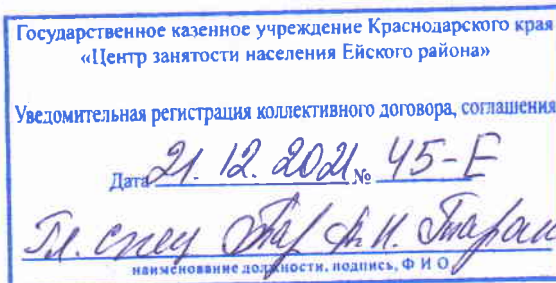 Государственное казенное учреждение Краснодарского края
«Центр занятости населения Ейского района»
Уведомительная регистрация коллективного договора, соглашения
Дата 21. 12. 2021 № 45-Е
Гл. спец Тар Н. Таран
наименование должности, подпись, Ф И О